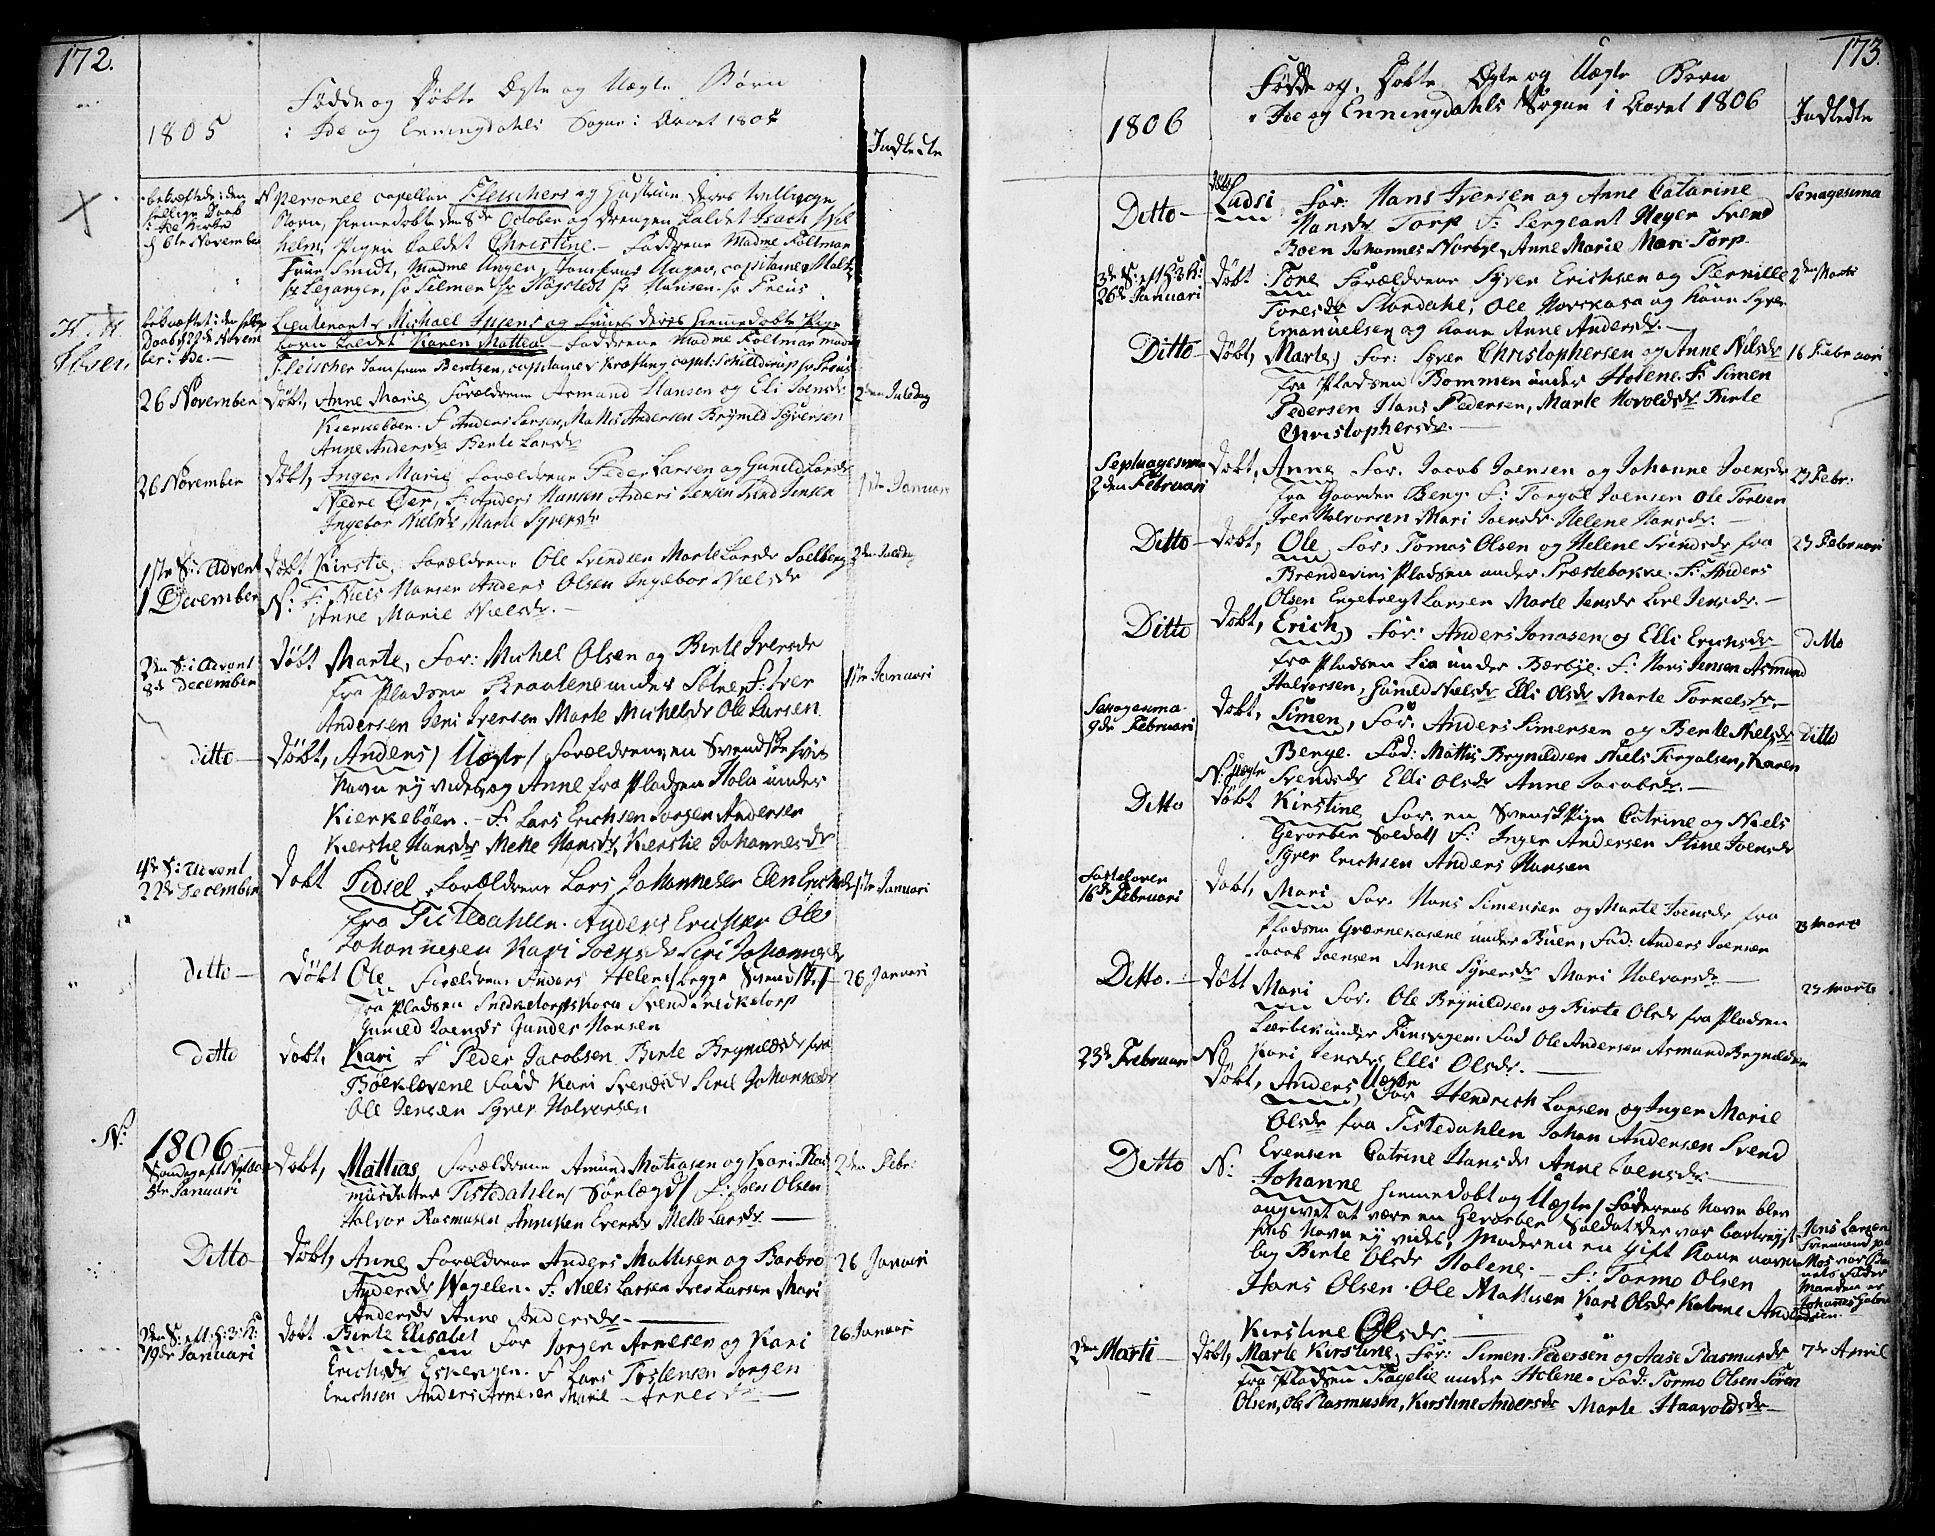 172.
1805
Fødde og Døbte Ægte og Uægte Børn
i Ide og Enningdahls Sogne i Aaret 1805
Indledte
bekræftede i den
hellige Daab
i Ide Kirke
d 6te November
N Personel capellan Fleischers og Hustrue deres tvillinge
Børn, hiemmedøbte den 8de October og Drengen kaldet Isach Vil
helm, Pigen kaldet Christine. — Fadderne Madme Foltmar
Frue Smidt, Madme Unger, Jomfrue Unger, capitaine Maltz
hr Leganger, hr Tilmer hr Høgstedt hr Hansen. hr Preus
bekræftet i den hellige
Daab d 22de Novem
ber i Ide. —
Lieutenant Michael Ipsens og Frues deres hiemmedøbte Pige
barn kaldet Karen Mattea — Fadderne Madme Foltmar mad
Fleischer Jomfrue Berntsen, capitaine Kræfting capt: Schilldrup hr Preus
26 November
Døbt, Anne Marie, Forældrene Asmund Hansen og Eli Joensdr
Kierkebøen. F Anders Larsen, Mattis Andersen Brynild Syversen
Anne Andersdr Bente Larsdr
2den Juledag
26 November
Døbt, Inger Marie Forældrene Peder Larsen og Gunild Larsdr
Nedre Øer, F: Anders Hansen Anders Jensen Trind Jensen
Ingebor Nielsdr Marte Syversdr
1ste Januari
1ste S: Advent
1 December
Døbt Kirstie, Forældrene Ole Svendsen Marte Larsdr Solberg
N: F: Niels Hansen Anders Olsen Ingebor Nielsdr
Anne Marie Nielsdr. —
2den Juledag
2den S: i Advent
8de December
Døbt Marte, For: Michel Olsen og Birte Iversdr
fra Pladsen Braatene under Sølver F: Iver
Andersen Jeni Iversen Marte Michelsdr Ole Larsen
1ste Januari
Ditto —
Døbt, Anders / Uægte / Forældrene, en Svendske hvis
Navn ej vides, og Anne fra Pladsen Hola under
Kierkebøen. — F: Lars Erichsen Jørgen Andersen
Kierstie Hansdr Mette Hansdr, Kierstie Johannesdr
4de S: Advent
22de December
Døbt Sidsel, Forældrene Lars Johannesen Elen Erichsdr
fra Tistedahlen. Anders Erichsen Ole
Johannesen Kari Joensdr Siri Johannesdr
1ste Januari
Ditto —
Døbt Ole, Forældrene Anders Helene / begge Svendske /
fra Pladsen Svend
Gunild Joensdr Gunder Hansen
26 Januari
Ditto
Døbt, Kari F Peder Jacobsen Birte Brynildsdr fra
Bøeklevene Fadd Kari Svendsdr Siril Johannesdr
Ole Jensen Syver Halvorsen
N:
1806
Søndag eft Nytaar
5te Januari
Døbt, Mattias, Forældrene Amund Matiasen og Kari Ras
musdatter Tistedahlen / Sørlægd / F: Joen Olsen
Halvor Rasmusen Anniken Evensdr Mette Larsdr —
2den Febr:
Ditto —
Døbt, Anne, Forældrene Anders Mattisen og Barbro
Andersdr Vagelen. F: Niels Larsen Iver Larsen Mari
Andersdr Anne Andersdr —
26 Januari
2den S: eft: H: 3: K:
19de Januari
Døbt. Birte Elisabet For Jørgen Arnesen og Kari
Erichsdr Espengen. F Lars Tostensen Jørgen
Erichsen Anders Arnesen Marie Arnesdr —
26 Januari
173.
1806
Fødde og Døbte Ægte og Uægte Børn
i Ide og Enningdahls Sogne i Aaret 1806
Indledte
Ditto —
Døbt
Ludsi For: Hans Iversen og Anne Catarine
Hansdr Torp F: Sergeant Meyer Svend
Boen Johannes Norbye, Anne Marie Mari Torp.
Sexagesima
3de S: eft H: 3: K:
26de Januari
Døbt Tore Forældrene Syver Erichsen og Pernille
Toresdr Stordahl, Ole Norskasa og kone Syver
Emanuelsen og kone Anne Andersdr. —
2den Marti
Ditto —
Døbt, Marte, For: Syver Christophersen og Anne Nilsdr
fra Pladsen Bommen under Holene. F: Simen
Pedersen Hans Pedersen, Marte Hovoldsdr Birte
Christophersdr. —
16 Februari
Septuagesima
2den Februari
Døbt, Anne For. Jacob Joensen og Johanne Joensdr
fra Gaarden Berg. F: Torgal Joensen Ole Toresen
Iver Halvorsen Mari Joensdr. Helene Hansdr. —
23 Febr:
Ditto —
Døbt, Ole, For: Tomas Olsen og Helene Svendsdr fra
Brændeviins Pladsen under Præstebakke. F: Anders
Olsen Engebregt Larsen Marte Jensdr Live Jensdr. —
23 Februari
Ditto
Døbt, Erich, For: Anders Jonasen og Elli Erichsdr
fra Pladsen Lia under Bærbye. F: Hans Jensen Asmund
Halvorsen, Gunild Nielsdr Elli Olsdr Marte Torkelsdr. —
ditto
Sexagesima
9de Februari
Døbt, Simen, For: Anders Simensen og Bente Nielsdr
Berge. Fad: Mattis Brynildsen Niels Torgalsen, Karen
Svendsdr Elli Olsdr Anne Jacobsdr. —
ditto
Ditto
N: Uægte
Døbt Kirstine For. en Svensk Pige Catrine og Niels
Gevorben Soldat / F: Inger Andersen Stine Joensdr
Syver Erichsen Anders Hansen
Fastelaven
16de Februari
Døbt, Mari For. Hans Simensen og Marte Joensdr fra
Pladsen Grønnekasene under Buer, Fad: Anders Joensen
Jacob Joensen Anne Syversdr Mari Halvorsdr —
23 Marti
Ditto. —
Døbt Mari For. Ole Brynildsen og Birte Olsdr fra Pladsen
under Fad Ole Andersen Asmund Brynildsen
Kari Jensdr Elli Olsdr. —
23 Marti
23de Februari
N.
Døbt, Anders Uægte, For Hendrich Larsen og Inger Marie
Olsdr fra Tistedahlen Johan Andersen Svend
Evensen Catrine Hansdr Anne Joensdr —
Ditto
N:
Johanne hiemmedøbt og Uægte / Faderens Navn blev
angivet at være en Gevorben Soldat, der var bortrejst
hans Navn ej vides, Moderen en Gift Kone navn
lig Birte Olsdr Holene. — F: Tormo Olsen
Hans Olsen. Ole Mattisen Kari Olsdr Katrine Andersdr
Kirstine Olsdr. —
Jens Larsen
Friemand paa
Mos var Bar
nets Fader
Manden er
Johannes
2den Marti
Døbt, Marte Kirstine, For: Simen Pedersen og Aase Rasmusdr
fra Pladsen Fagelie under Holene. Fad: Tormo Olsen Søren
Olsen, Ole Rasmusen, Kirstine Andersdr Marte Haavoldsdr —
7de April